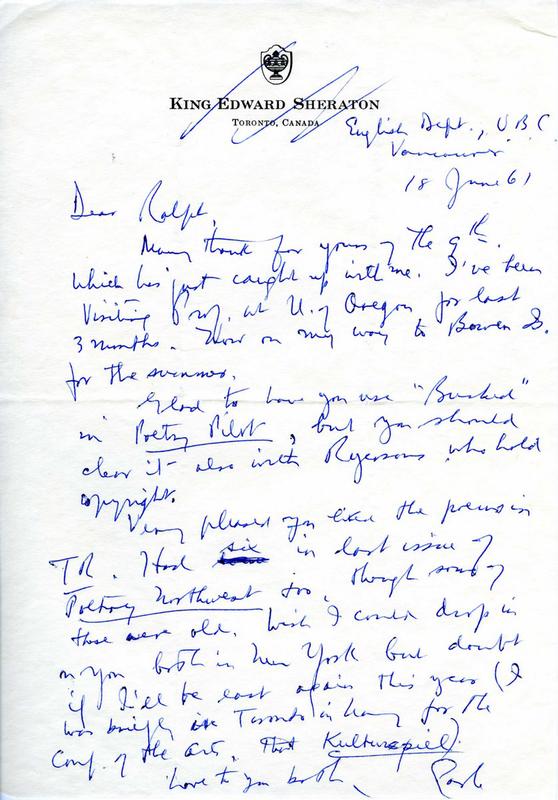 KING EDWARD SHERATON
TORONTO, CANADA
English Dept., UBC
Vancouver
18 June 61
Dear Ralph,
Many thanks for yours of the 9th.
which has just caught up with me. I've been
Visiting Prof. at U. of Oregon for last
3 months. Now on my way to Bowen Is.
for the summer.
Glad to have you use "Bushed"
in Poetry Pilot, but you should
clear it also with Ryersons, who hold
copyright.
Very pleased you liked the poems in
TR. Had six in last issue of
Poetry Northwest too, though some of
those were old. Wish I could drop in
on you both in New York but doubt
if I'll be east again this year (I
was briefly in Toronto in May for the
Conf. of the Arts, that Kulturspiel).
Love to you both,